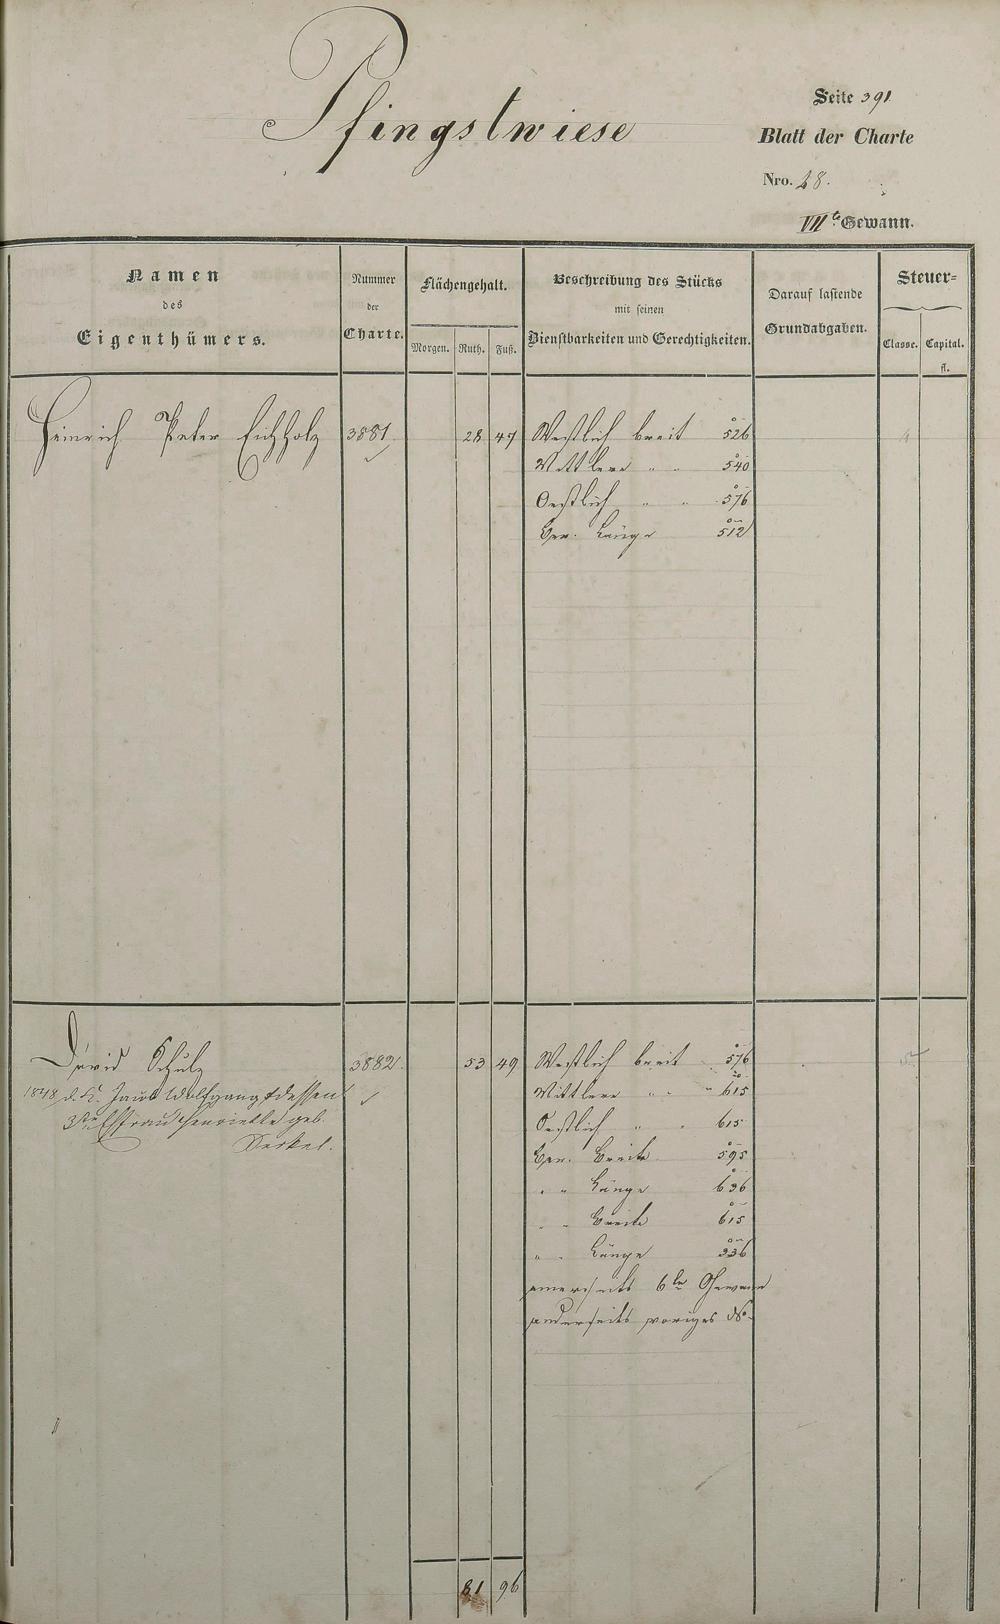 Pfingstwiese
Seite 391
Blatt der Charte
Nro. 28.
VII te Gewann.
Namen
des
Eigenthümers.
Nummer
der
Charte.
Flächengehalt.
Morgen. Ruth. Fuß.
Beschreibung des Stücks
mit seinen
Dienstbarkeiten und Gerechtigkeiten.
Darauf lastende
Grundabgaben.
Steuer-
Classe. Capital.
fl.
Heinrich Peter Eichholz 3881 28 47 Westlich breit 526
Mittlere " " 540
Oestlich " " 576
Ger. Länge 512
David Schulz 3882 53 49 Westlich breit 576
1848 d. K. Jacob Wolfgang & dessen Mittlere " " 615
3te Ehefrau Henriette geb. Oestlich " " 615
Merkel. Ger. Breite 595
" " Länge 636
" " Breite 615
" " Länge 336
einerseits 6te Gewann
anderseits voriges No
81 96